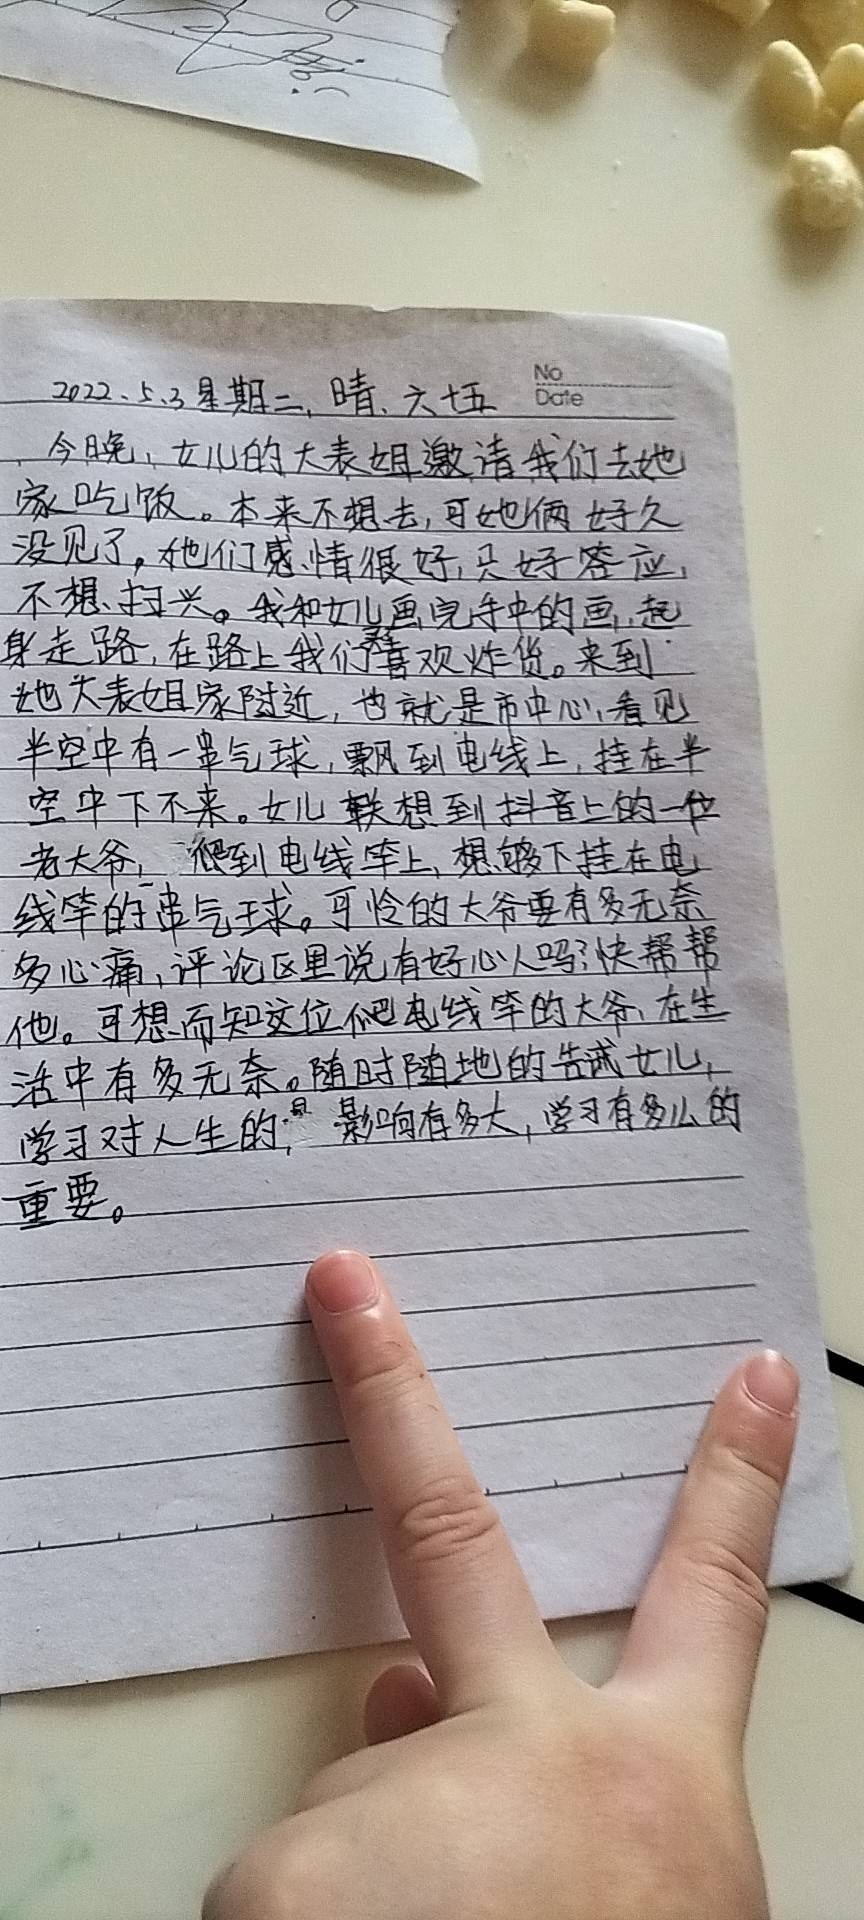 No
Date
2022、5、3星期二，晴、六十五
今晚，女儿的大表姐邀请我们去她
家吃饭。本来不想去，可她俩好久
没见了，他们感情很好，只好答应，
不想扫兴。我和女儿画完手中的画，起
身走路，在路上我们喜欢炸货。来到
她大表姐家附近，也就是市中心，看见
半空中有一串气球，飘到电线上，挂在半
空中下不来。女儿联想到抖音上的一位
老大爷，爬到电线竿上，想够下挂在电
线竿的串气球。可怜的大爷要有多无奈
多心痛，评论区里说有好心人吗？快帮帮
他。可想而知这位爬电线竿的大爷，在生
活中有多无奈。随时随地的告诫女儿，
学习对人生的，影响有多大，学习有多么的
重要。